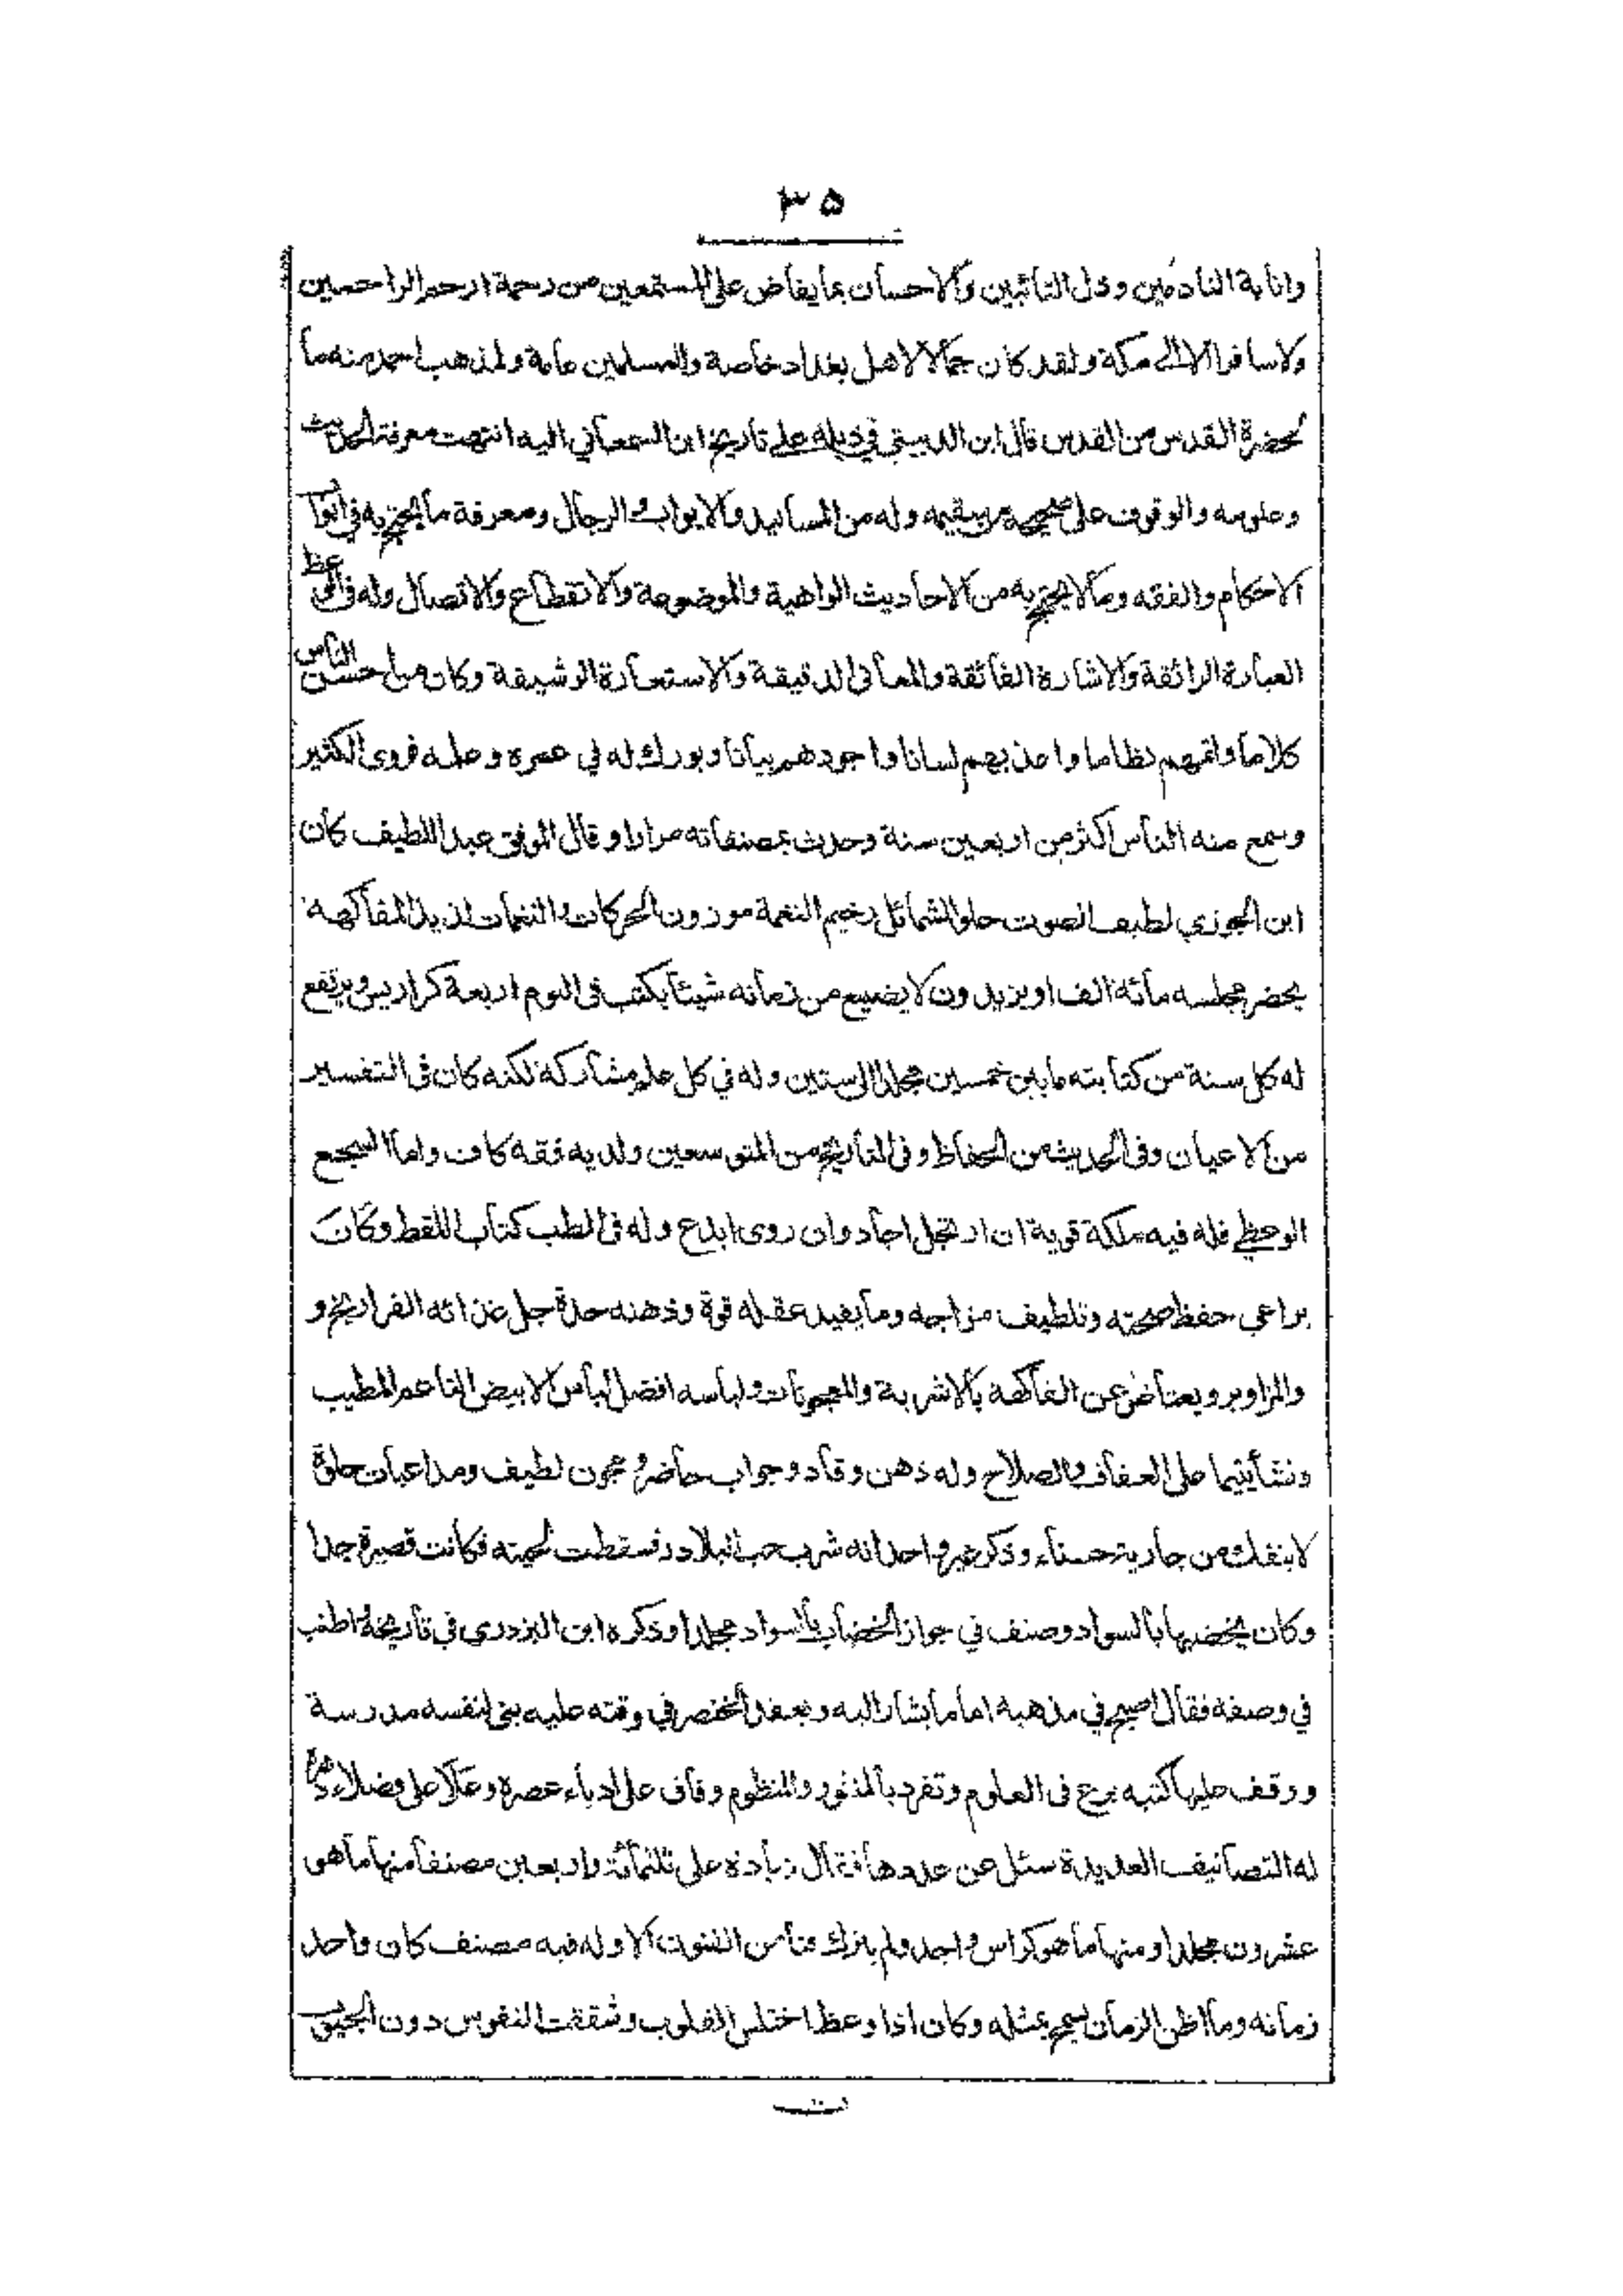 ٣٥
وانابة النادمين وذل التائبين والاحسان بما يفاض على المستمعين من رحمة ارحم الراحمين
ولا سافر الا الى مكة ولقد كان جمالا لاهل بغداد خاصة والمسلمين عامة ولمذهب احمد منه ما
لحضرة القدس من القدس قال ابن الدبيثي في ذيله على تاريخ ابن السمعاني اليه انتهت معرفة الحديث
وعلومه والوقوف على صحيحه من سقيمه وله من المسانيد والابواب والرجال ومعرفة ما يحتج به في ابواب
الاحكام والفقه وما لا يحتج به من الاحاديث الواهية والموضوعة والانقطاع والاتصال وله في الوعظ
العبارة الرائقة والاشارة الفائقة والمعانى الدقيقة والاستعارة الرشيقة وكان من احسن الناس
كلاما واتمهم نظاما واعذبهم لسانا واجودهم بيانا وبورك له في عمره وعمله فروى الكثير
وسمع منه الناس اكثر من اربعين سنة وحدث بمصنفاته مرارا وقال الموفق عبد اللطيف كان
ابن الجوزي لطيف الصوت حلو الشمائل رخيم النغمة موزون الحركات والنغمات لذيذ المفاكهة
يحضر مجلسه مائة الف او يزيدون لا يضيع من زمانه شيئا يكتب فى اليوم اربعة كراريس ويرتفع
له كل سنة من كتابته ما بين خمسين مجلدا الى ستين وله في كل علم مشاركة لكنه كان فى التفسير
من الاعيان وفى الحديث من الحفاظ وفى التاريخ من المتوسعين ولديه فقه كاف واما السجع
الوعظي فله فيه ملكة قوية ان ارتجل اجاد وان روى ابدع وله فى الطب كتاب اللقط وكان
يراعي حفظ صحته وتلطيف مزاجه وما يفيد عقله قوة وذهنه حدة جل غذائه الفراريخ و
والمزاوير ويعتاض عن الفاكهة بالاشربة والمعجونات ولباسه افضل لباس الابيض الناعم المطيب
ونشأ يتيما على العفاف والصلاح وله ذهن وقاد وجواب حاضر ومجون لطيف ومداعبات حلوة
لا ينفك من جارية حسناء وذكر غير واحد انه شرب حب البلادر فسقطت لحيته فكانت قصيرة جدا
وكان يخضبها بالسواد وصنف في جواز الخضاب بالسواد مجلدا وذكره ابن البزدرى في تاريخه واطنب
في وصفه فقال اصبح في مذهبه اماما يشار اليه ويعقد الخنصر في وقته عليه بنى لنفسه مدرسة
ووقف عليها كتبه برع فى العلوم وتفرد بالمنثور والمنظوم وفاق على ادباء عصره وعلا على فضلاء دهره
له التصانيف العديدة سئل عن عددها فقال زيادة على ثلثمائة واربعين مصنفا منها ما هو
عشرون مجلدا ومنها ما هو كراس واحد ولم يترك فنا من الفنون الا وله فيه مصنف كان واحد
زمانه وما اظن الزمان يسمح بمثله وكان اذا وعظ اختلس القلوب وشققت النفوس دون الجيوب
ت